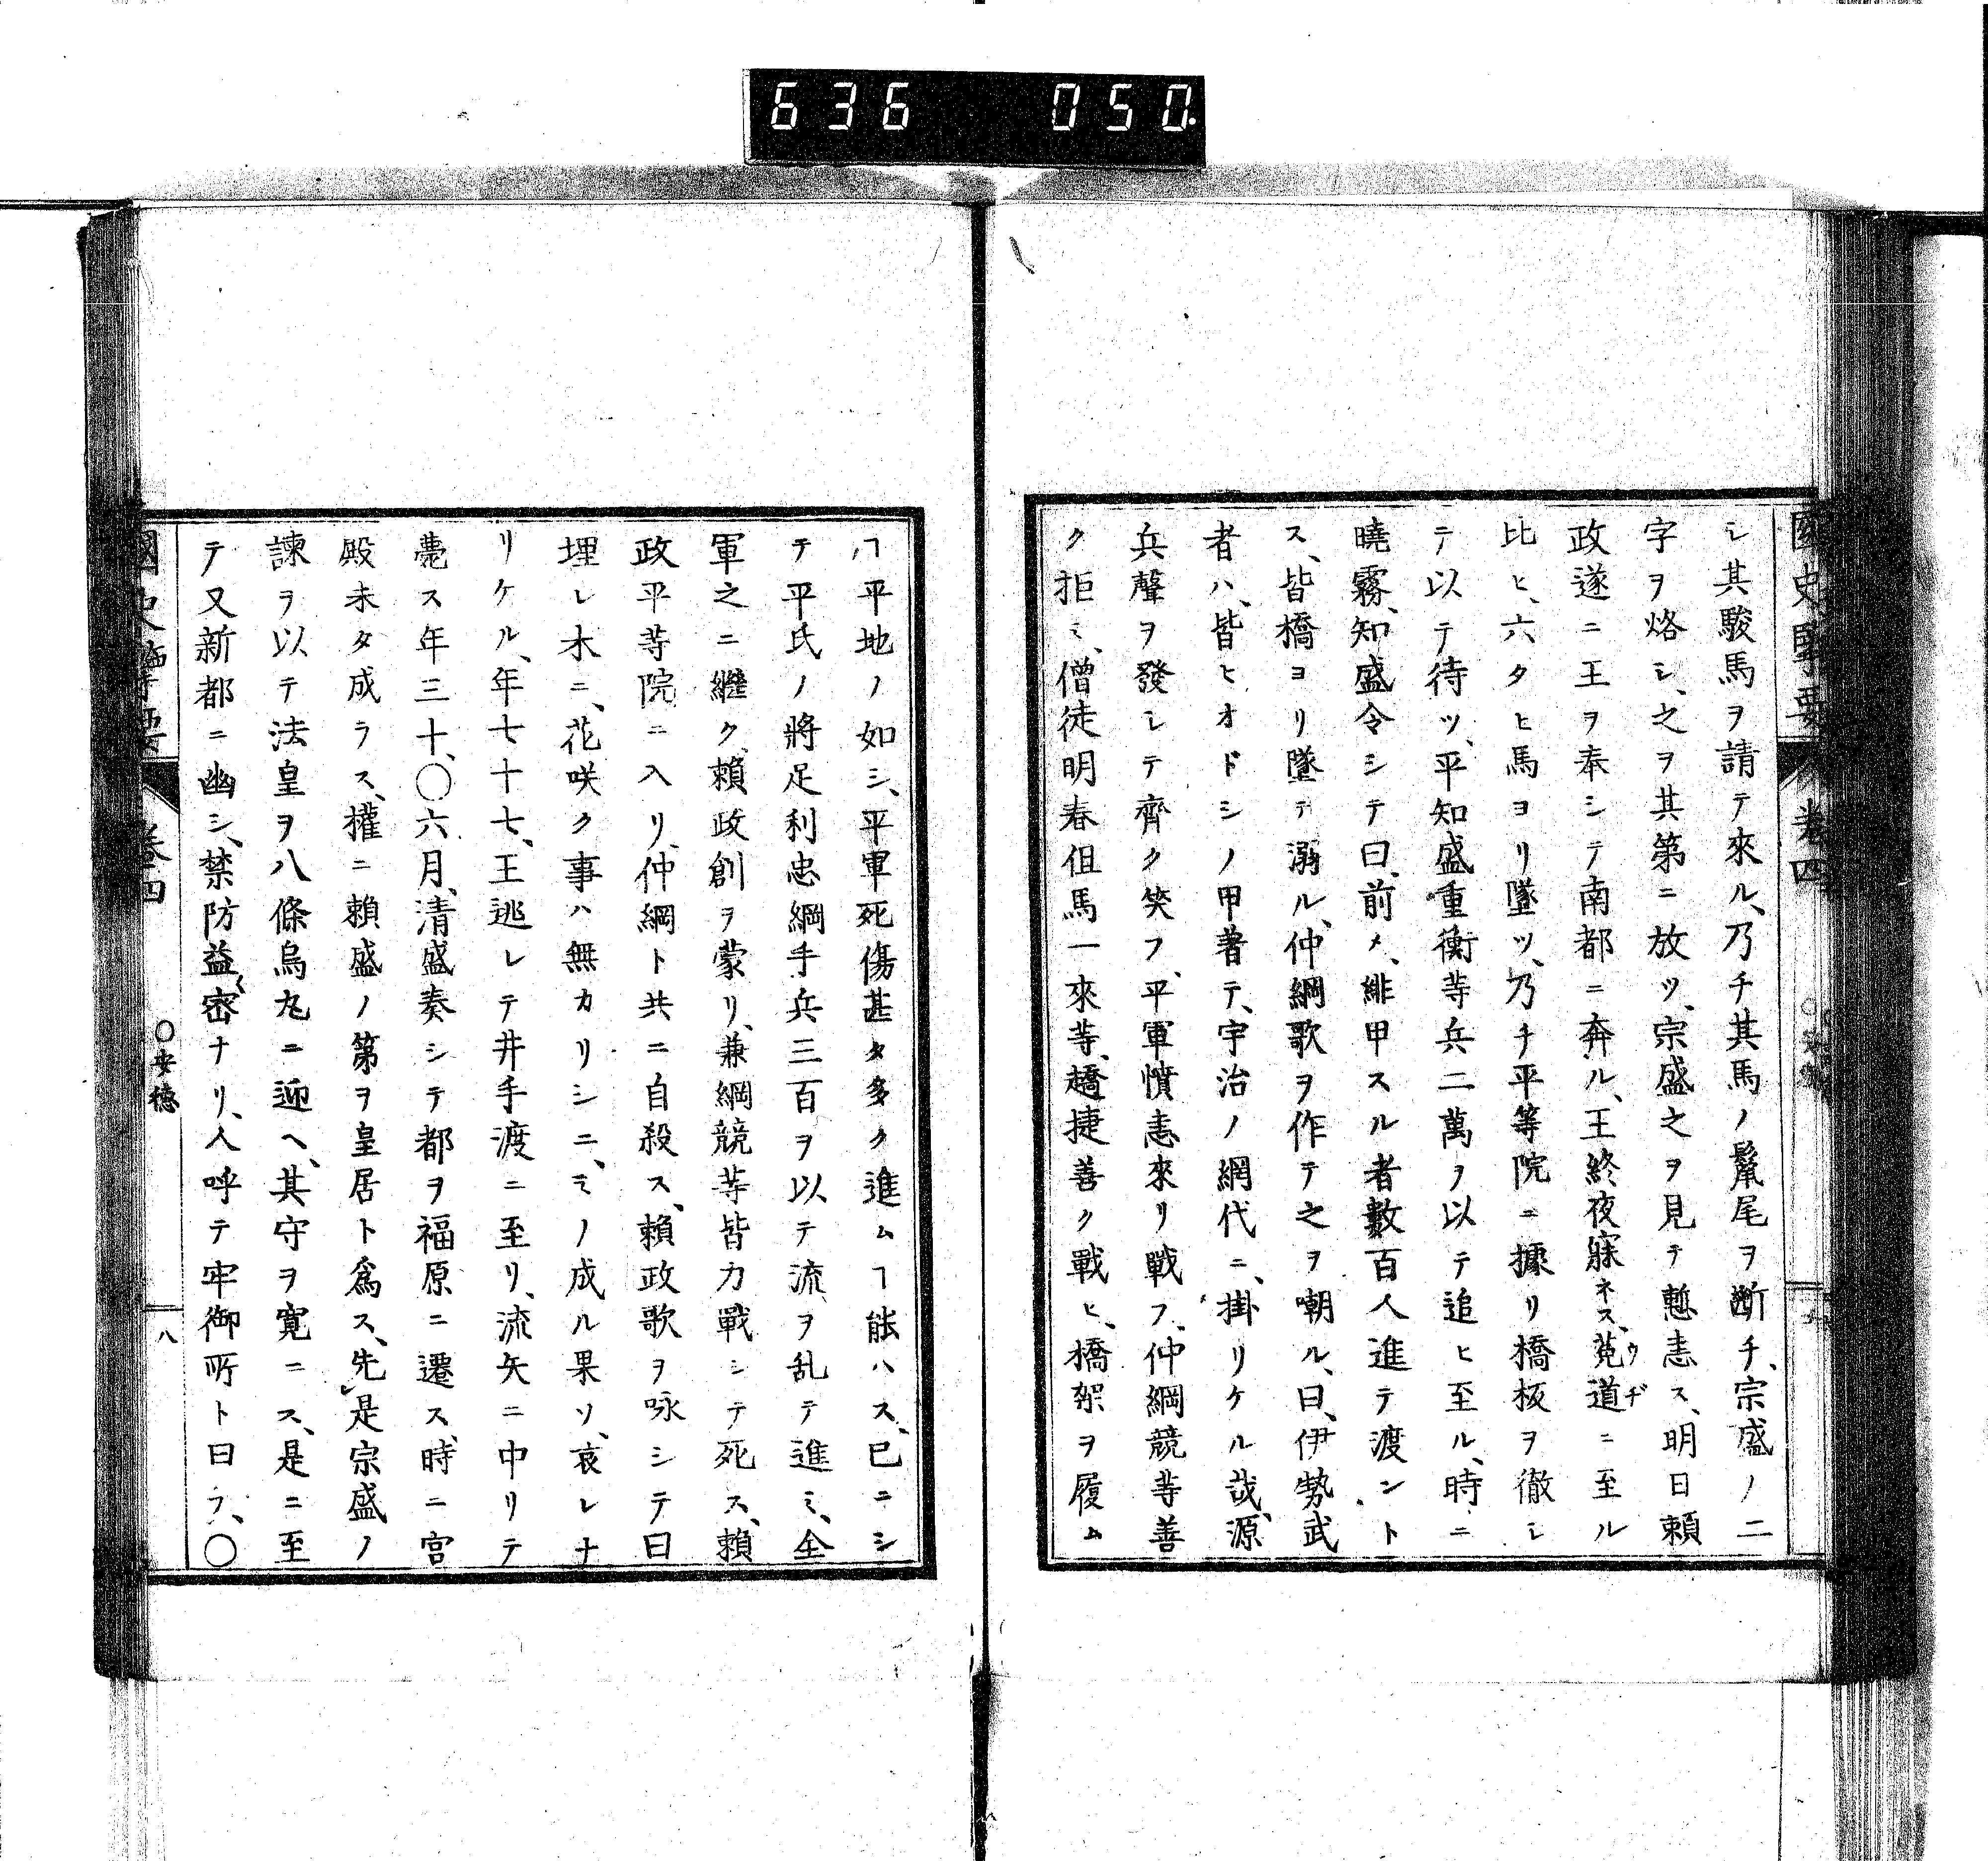 636 050.
シ其駿馬ヲ請テ來ル、乃チ其馬ノ鬣尾ヲ断チ、宗盛ノ二
字ヲ烙シ、之ヲ其第ニ放ツ、宗盛之ヲ見テ慙恚ス、明日頼
政遂ニ王ヲ奉シテ南都ニ奔ル、王終夜寐ネス、菟道ニ至ル
ウヂ
比ヒ、六タヒ馬ヨリ墜ツ、乃チ平等院ニ據リ橋板ヲ徹シ
テ以テ待ツ、平知盛重衡等兵二萬ヲ以テ追ヒ至ル、時ニ
曉霧、知盛令シテ曰、前メ、緋甲スル者數百人進テ渡ント
ス、皆橋ヨリ墜テ溺ル、仲綱歌ヲ作テ之ヲ嘲ル、曰、伊勢武
者ハ、皆ヒオドシノ甲著テ、宇治ノ網代ニ、掛リケル哉、源
兵聲ヲ發シテ齊ク笑フ、平軍憤恚來リ戰フ、仲綱競等善
ク拒ミ、僧徒明春但馬一來等、趫捷善ク戰ヒ、橋架ヲ履ム
ヿ平地ノ如シ、平軍死傷甚タ多ク進ムヿ能ハス、已ニシ
テ平氏ノ將足利忠綱手兵三百ヲ以テ流ヲ乱テ進ミ、全
軍之ニ繼ク、頼政創ヲ蒙リ、兼綱競等皆力戰シテ死ス、頼
政平等院ニ入リ、仲綱ト共ニ自殺ス、頼政歌ヲ咏シテ曰
埋レ木ニ、花咲ク事ハ無カリシニ、ミノ成ル果ソ、哀レナ
リケル、年七十七、王逃レテ井手渡ニ至リ、流矢ニ中リテ
薨ス年三十、〇六月、清盛奏シテ都ヲ福原ニ遷ス、時ニ宮
殿未タ成ラス、權ニ頼盛ノ第ヲ皇居ト爲ス、先是宗盛ノ
諫ヲ以テ法皇ヲ八條烏丸ニ迎ヘ、其守ヲ寛ニス、是ニ至
テ又新都ニ幽シ、禁防益密ナリ、人呼テ牢御所ト曰フ、〇
卷四
〇安德
八